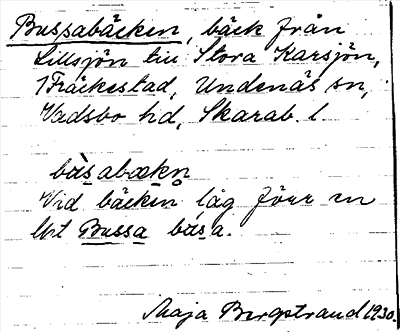 Bussabäcken, bäck från
Lillsjön till Stora Karsjön,
1 Fräckestad, Undenäs sn,
Vadsbo hd, Skarab. l.
bàsabækn̥
Vid bäcken låg förr en
lht Bussa bàsa.
Maja Bergstrand 1930.